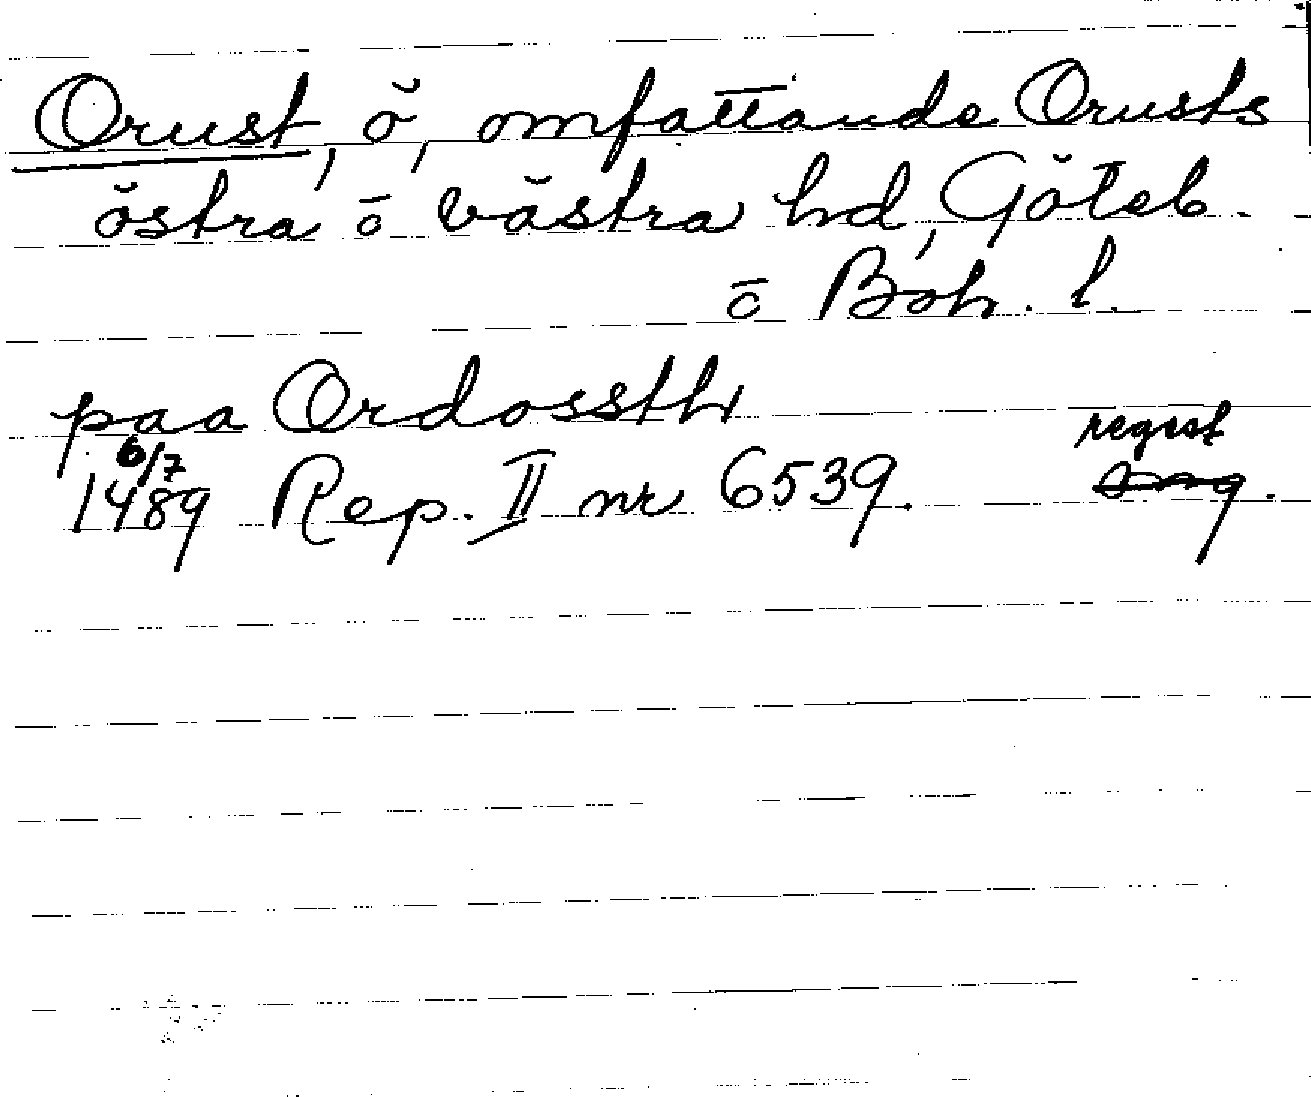 Orust, ö, omfattande Orusts
östra o västra hd, Göteb.
o Boh. l.
paa Ordossth
regest
6/7
1489 Rep. II nr 6539.